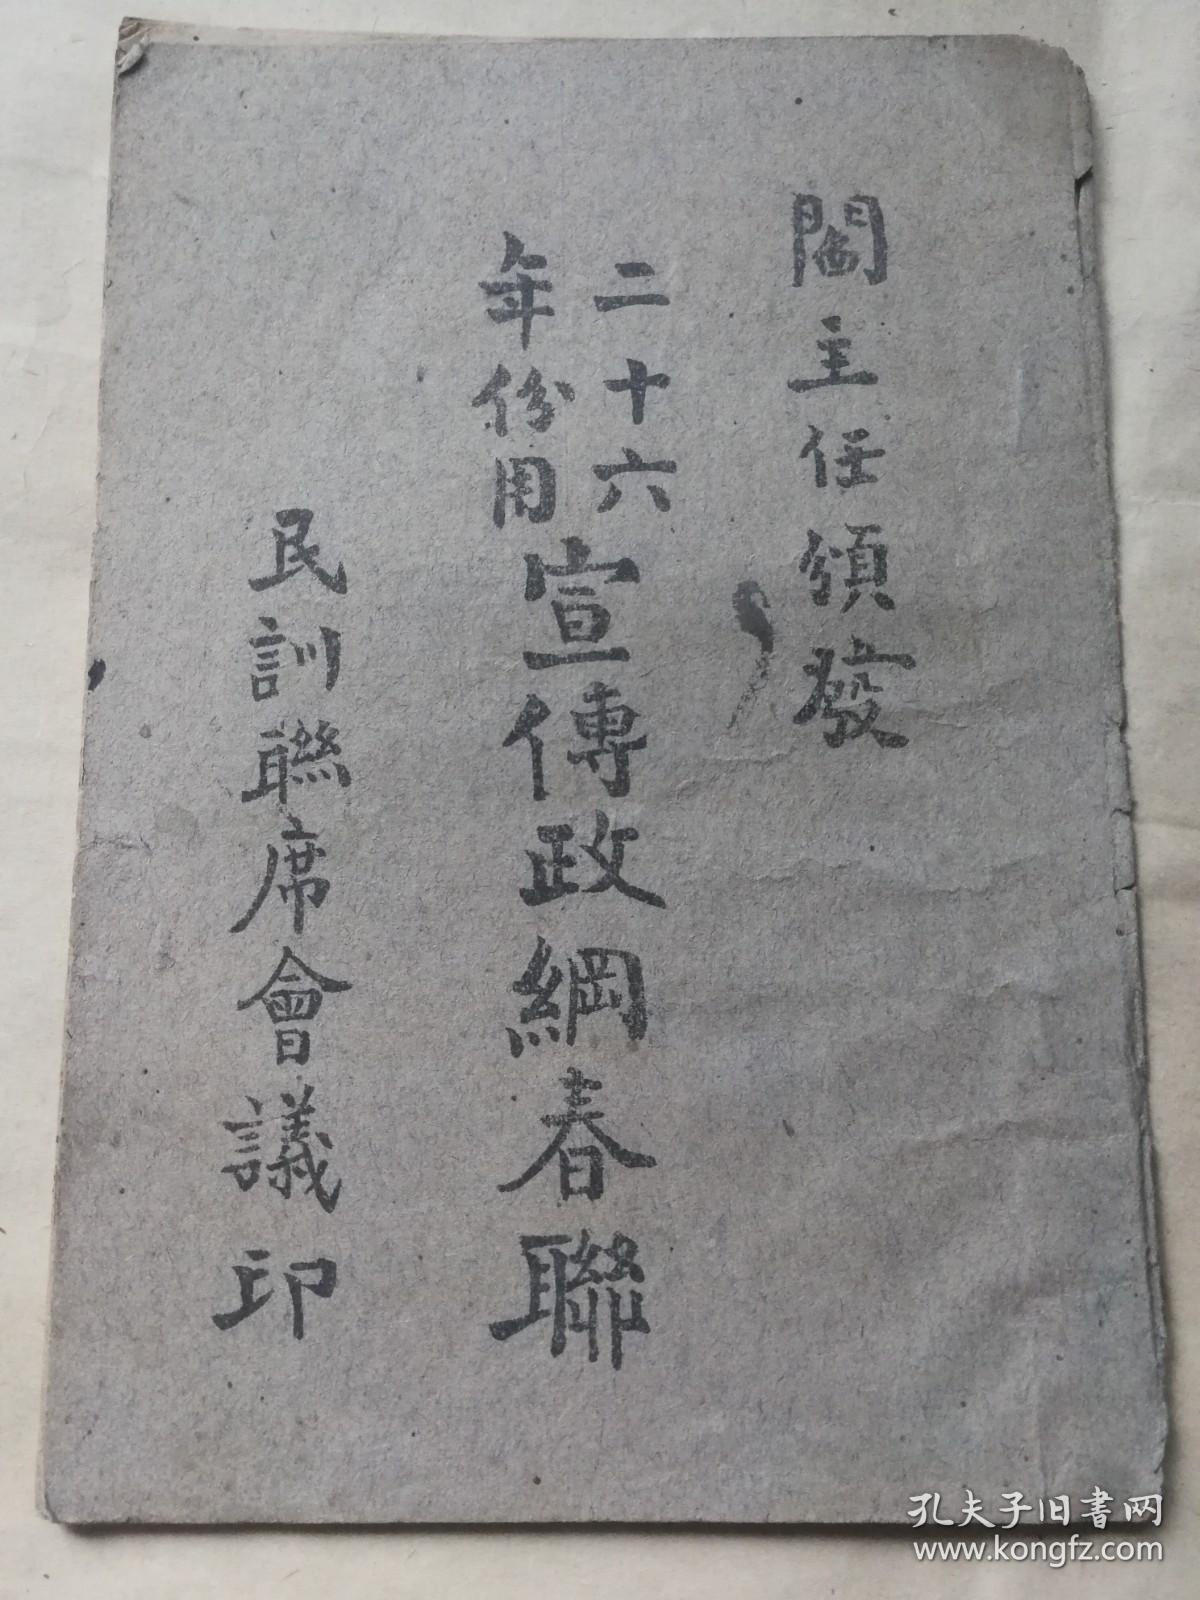 閻主任頒發
二十六
年份用
宣傳政綱春聯
民訓聯席會議印
孔夫子旧書网
www.kongfz.com